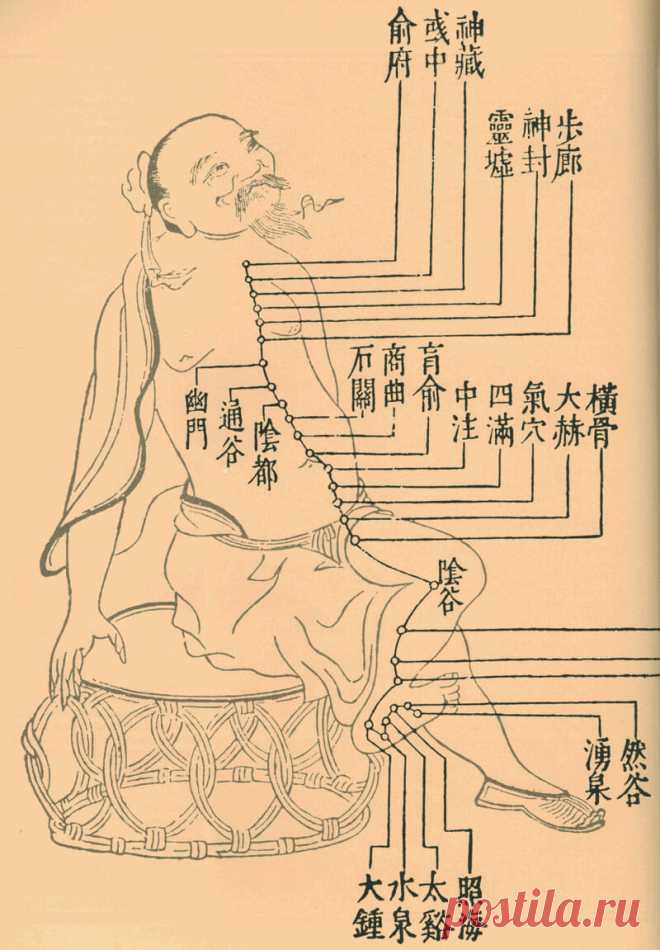 俞府
彧中
神藏
靈墟
神封
歩廊
石關
商曲
肓俞
中注
四滿
氣穴
大赫
橫骨
幽門
通谷
陰都
陰谷
湧泉
然谷
大鍾
水泉
太谿
照海
postila.ru